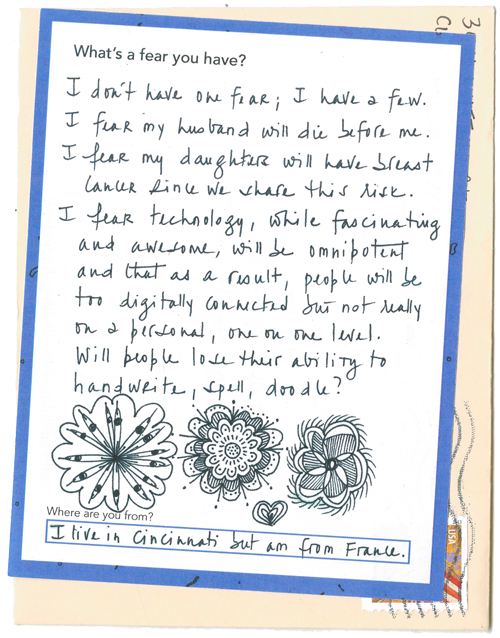 What's a fear you have?
I don't have one fear; I have a few.
I fear my husband will die before me.
I fear my daughters will have breast
cancer since we share this risk.
I fear technology, while fascinating
and awesome, will be omnipotent
and that as a result, people will be
too digitally connected but not really
on a personal, one on one level.
Will people lose their ability to
handwrite, spell, doodle?
Where are you from?
I live in Cincinnati but am from France.
USA